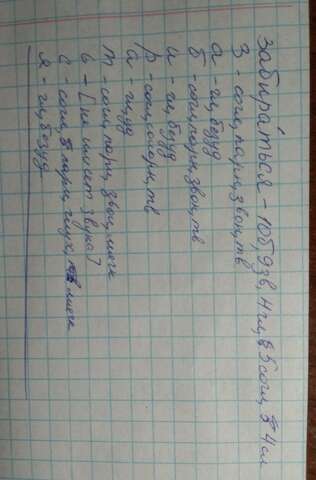 забира́ться - 10б, 9зв, 4гл, 5согл, 4сл
З - согл, парн, звон, тв
а - гл, безуд
б - согл, парн, звон, тв
и - гл, безуд
р - сон, тв
а - гл, уд
т - согл, парн, звон, мягк
ь - [не имеет звука]
с - согл, парн, глух, мягк
я - гл, безуд